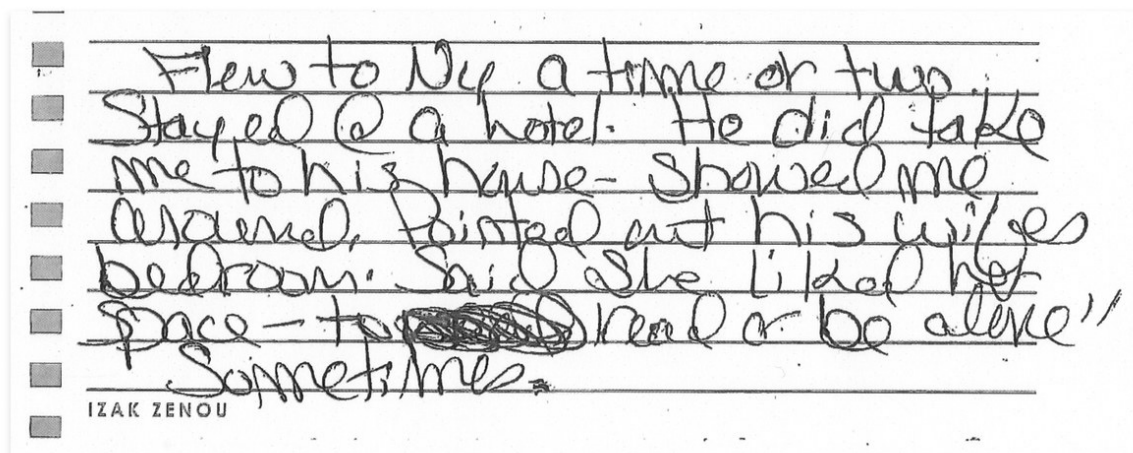 Flew to Ny a time or two.
Stayed @ a hotel. He did take
me to his house - Showed me
around. Pointed out his wifes
bedroom. Said She liked her
space - to read or be alone"
Sometimes.
IZAK ZENOU